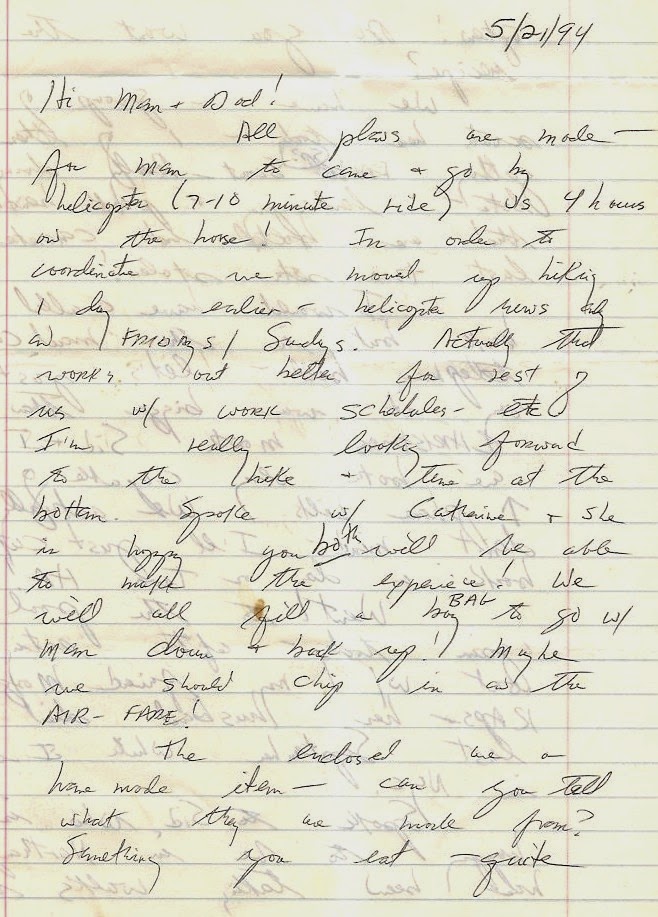 5/21/94
Hi Mom + Dad!
All plans are made -
for Mom to come + go by
helicopter (7-10 minute ride) vs 4 hours
on the horse! In order to
coordinate we moved up hiking
1 day earlier - helicopter runs only
on FRIDAYS / Sundys. Actually that
works out better for rest of
us w/ work schedules - etc
I'm really looking forward
to the hike + time at the
bottom. Spoke w/ Catherine + she
is happy you both will be able
to make the experience! We
will all fill a bag BAG to go w/
Mom down + back up! Maybe
we should chip in on the
AIR-FARE!
The enclosed are a
home made item - can you tell
what they are made from?
Something you eat - quite